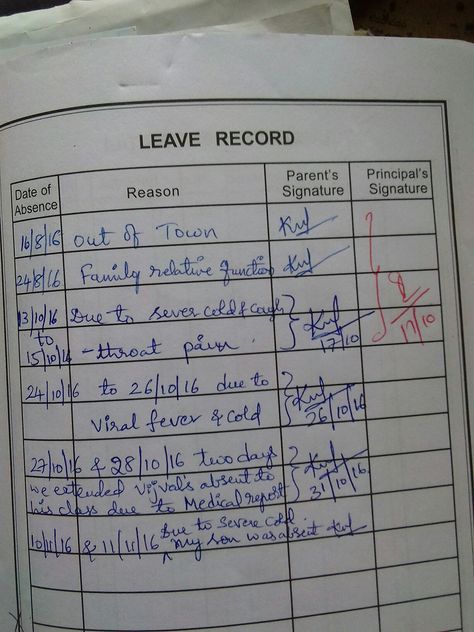 LEAVE RECORD
Date of Absence
Reason
Parent's Signature
Principal's Signature
16/8/16 out of Town
24/8/16 Family relative function
13/10/16 Due to sever cold & cough
to
15/10/16 - throat pain. 17/10
17/10
24/10/16 to 26/10/16 due to
Viral fever & cold 26/10/16
27/10/16 & 28/10/16 two days
we extended Vijval's absent to
his class due to Medical report 31/10/16.
Due to severe cold
10/11/16 & 11/11/16 ^ My son was absent